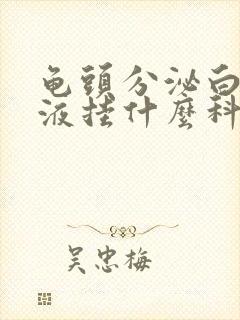 龟頭分泌白
液挂什麼科
吴忠梅